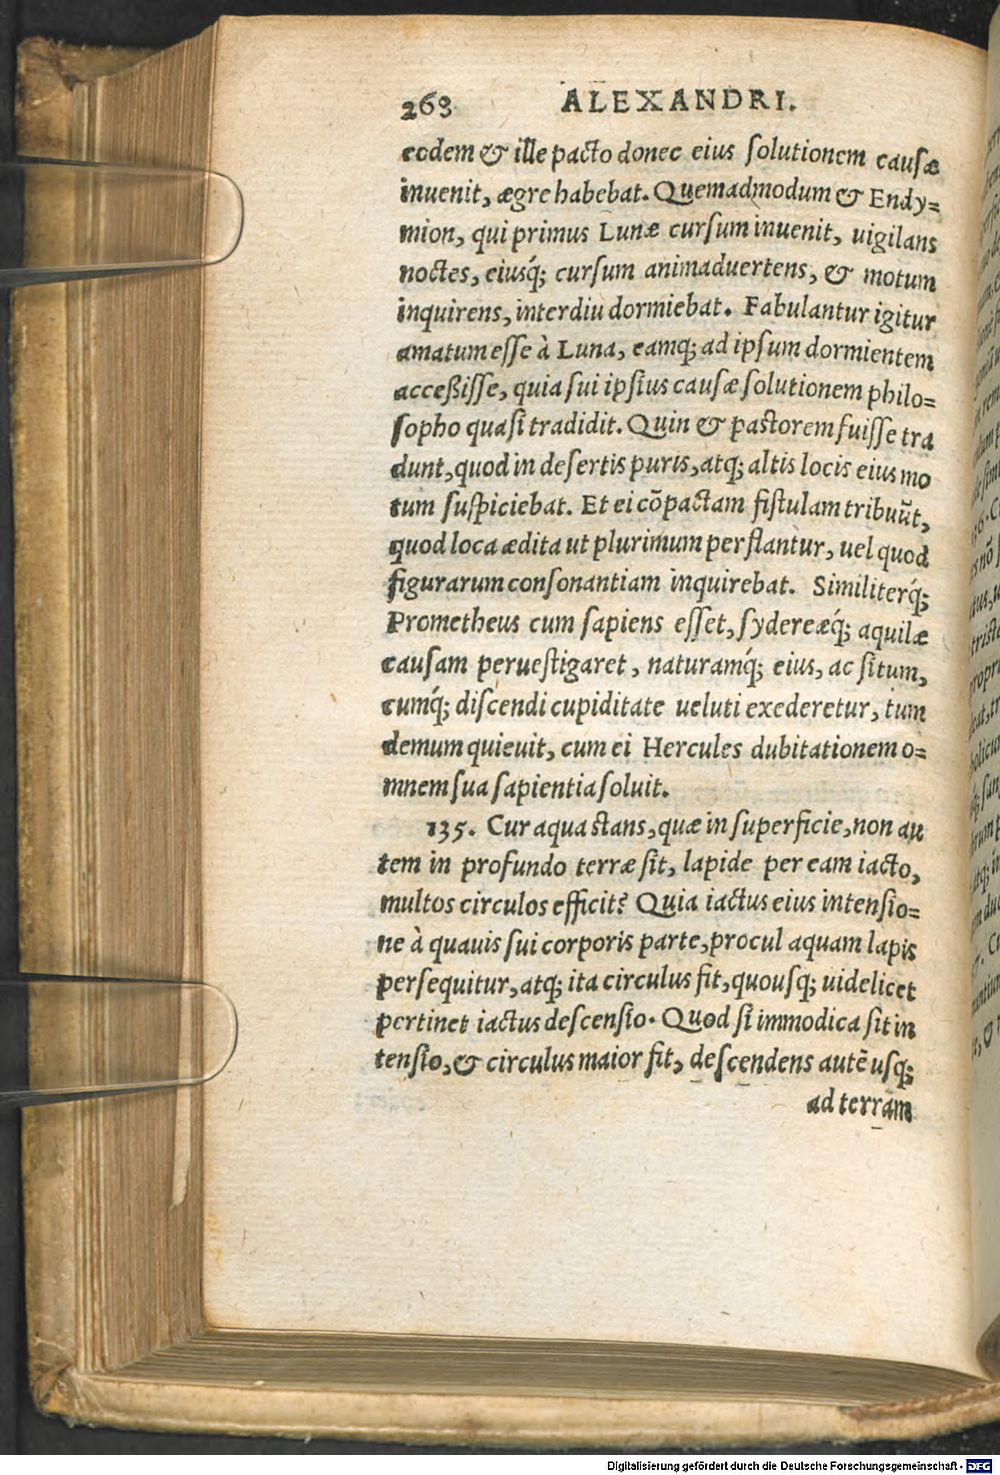 268 ALEXANDRI.
eodem & ille pacto donec eius ſolutionem cauſæ
inuenit, ægre habebat. Quemadmodum & Endy=
mion, qui primus Lunæ curſum inuenit, uigilans
noctes, eiusq́; curſum animaduertens, & motum
inquirens, interdiu dormiebat. Fabulantur igitur
amatum eſſe à Luna, eamq; ad ipſum dormientem
acceßiſſe, quia ſui ipſius cauſæ ſolutionem philo=
ſopho quaſi tradidit. Quin & paſtorem fuiſſe tra
dunt, quod in deſertis puris, atq; altis locis eius mo
tum ſuſpiciebat. Et ei cõpactam fiſtulam tribuũt,
quod loca ædita ut plurimum perflantur, uel quod
figurarum conſonantiam inquirebat. Similiterq́;
Prometheus cum ſapiens eſſet, ſydereæq́; aquilæ
cauſam perueſtigaret, naturamq́; eius, ac ſitum,
cumq́; diſcendi cupiditate ueluti exederetur, tum
demum quieuit, cum ei Hercules dubitationem o=
mnem ſua ſapientia ſoluit.
135. Cur aqua ſtans, quæ in ſuperficie, non au
tem in profundo terræ ſit, lapide per eam iacto,
multos circulos efficit? Quia iactus eius intenſio=
ne à quauis ſui corporis parte, procul aquam lapis
perſequitur, atq; ita circulus fit, quouſq; uidelicet
pertinet iactus deſcenſio. Quod ſi immodica ſit in
tenſio, & circulus maior fit, deſcendens autẽ uſq;
ad terram
Digitalisierung gefördert durch die Deutsche Forschungsgemeinschaft - DFG